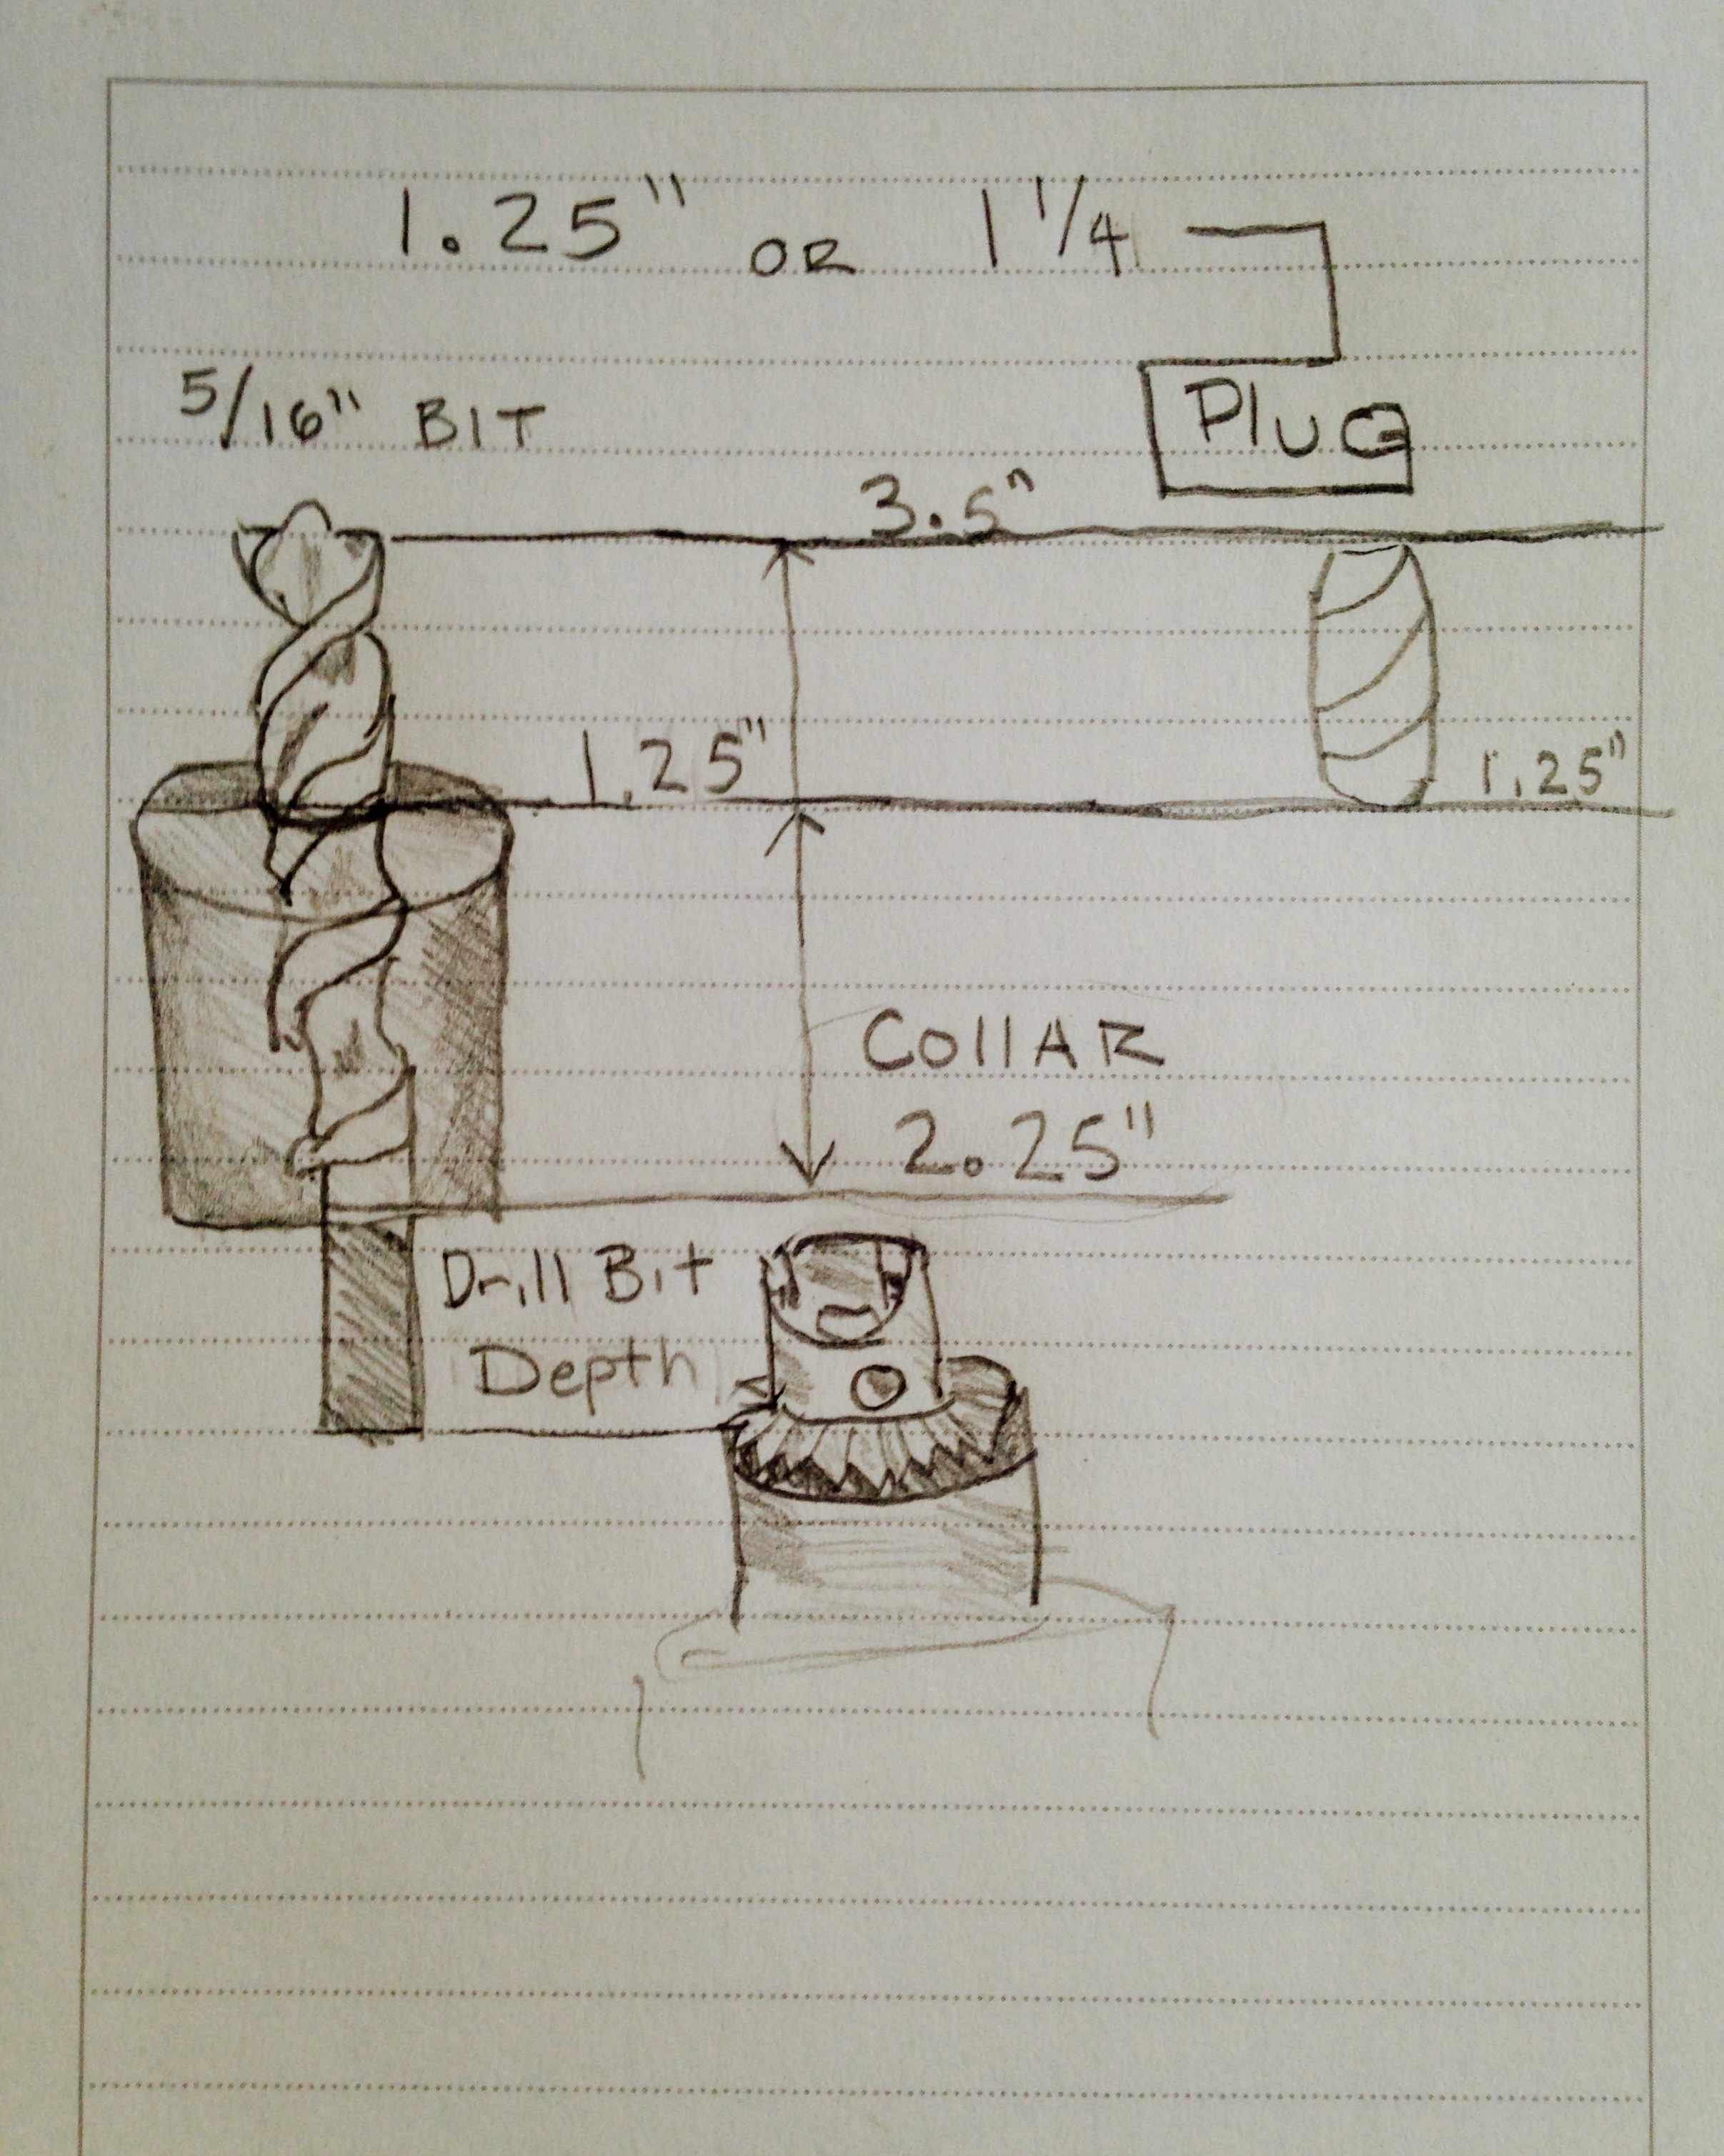 1.25" OR 1 1/4
5/16" BIT
PluG
3.5"
1.25"
1.25"
CollAR
2.25"
Drill Bit
Depth